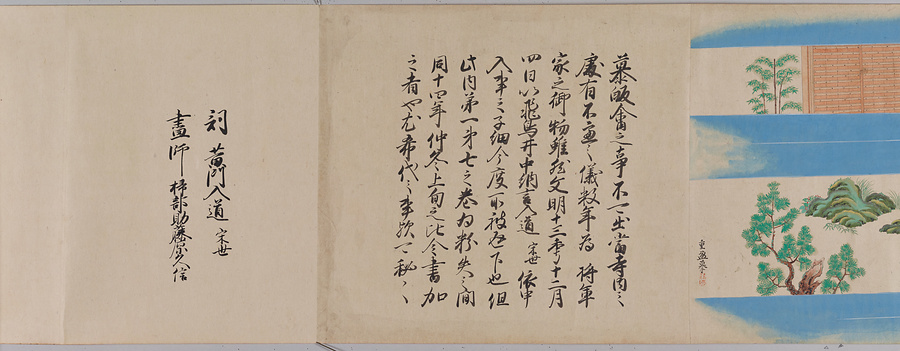 慕皈畲之事不可出當寺内之
處有不慮之儀数年為 将軍
家之御物雖然文明十三年十二月
四日以飛鳥井中納言入道 宋世 依申
入事之子細今度所被返下也但
此内第一第七之巻為粉失之間
同十四年仲冬上旬之比令書加
之者也尤希代之事歟可秘々
詞 黄門入道 宋世
畫師 掃部助藤原久信